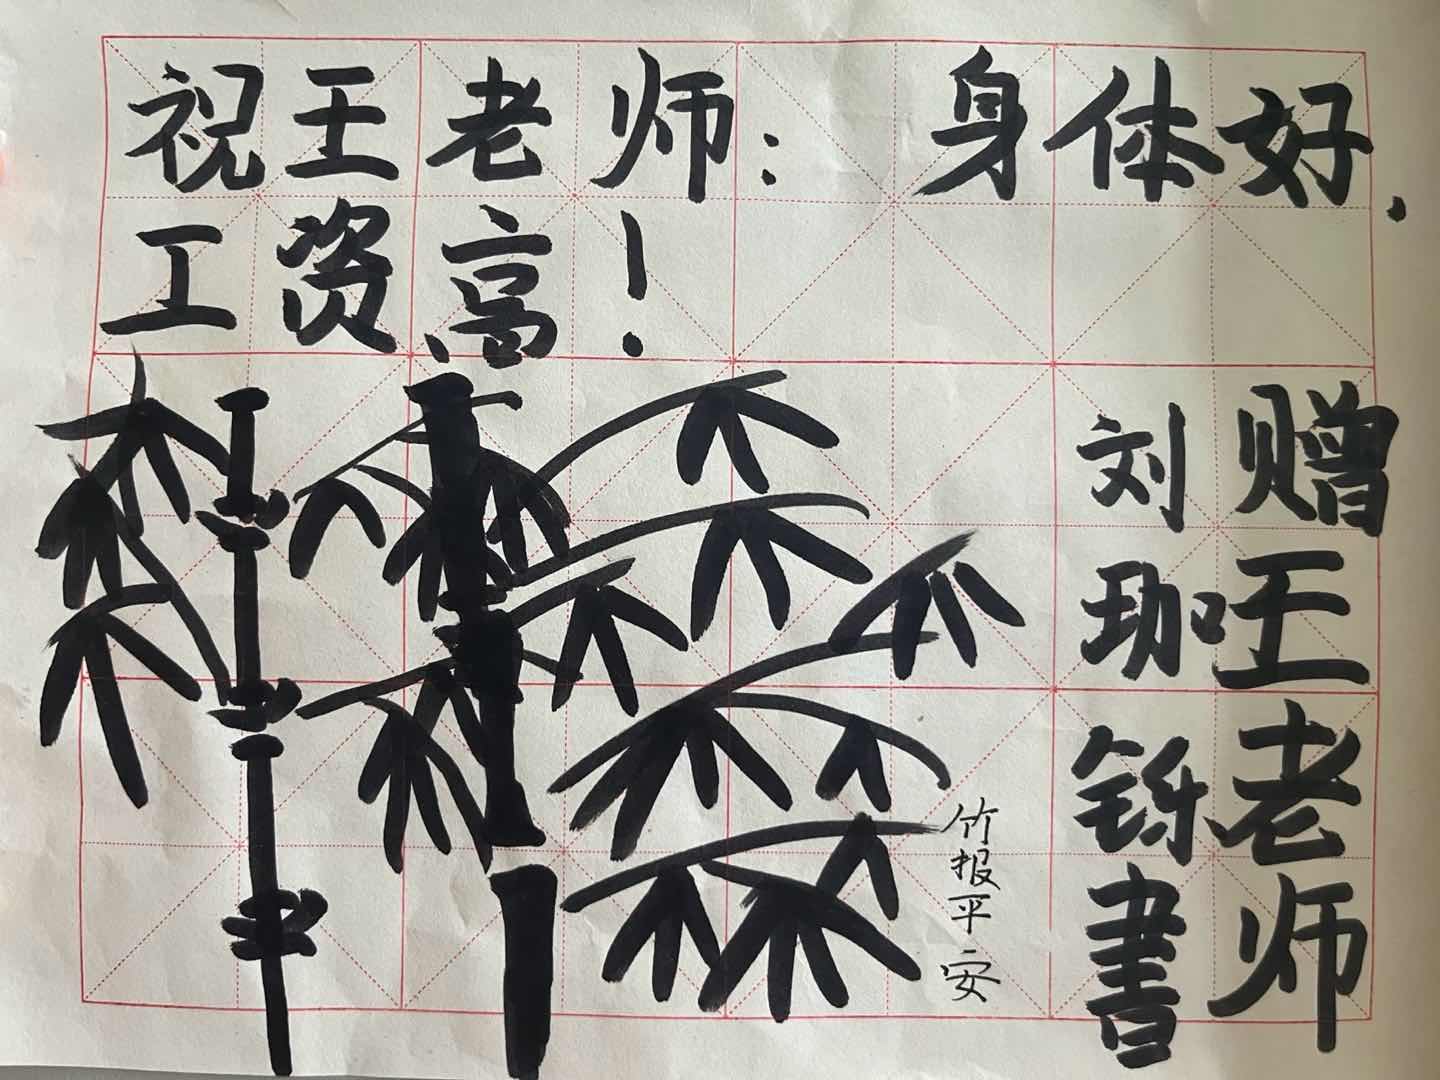 祝王老师：身体好.
工资高！
赠王老师
刘玏铄書
竹报平安